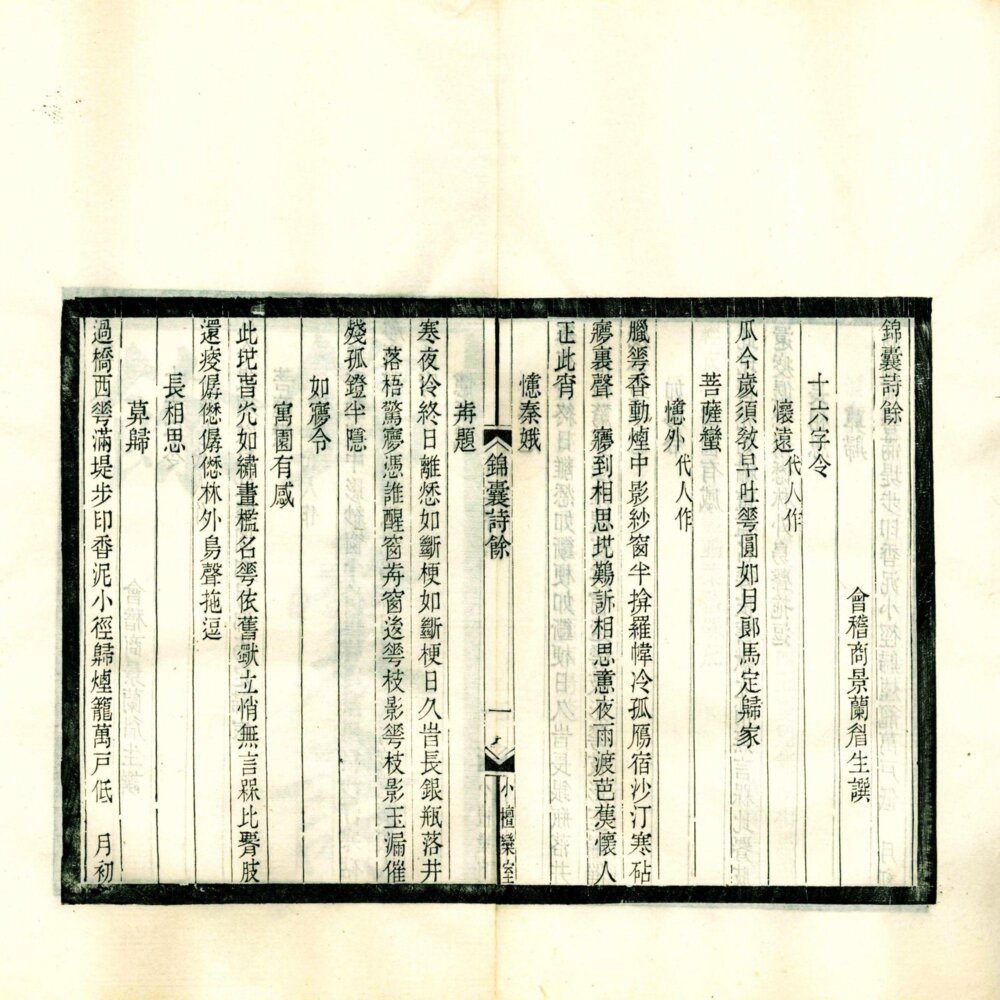 錦囊詩餘
會稽商景蘭眉生譔
十六字令
懷遠代人作
瓜今歲須敎早吐蕚圓如月郎馬定歸家
菩薩蠻
憶外代人作
臘蕚香動煙中影紗窗半揜羅幃冷孤鴈宿沙汀寒砧
夢裏聲　夢到相思地難訴相思意夜雨渡芭蕉懷人
正此宵
憶秦娥
歬題
寒夜冷終日離愁如斷梗如斷梗日久峕長銀瓶落井
落梧驚夢憑誰醒窗歬窗後蕚枝影蕚枝影玉漏催
殘孤鐙半隱
如夢令
寓園有感
此地峕光如繡畫檻名蕚依舊獨立悄無言槑比腎肢
還瘦僝僽僝僽林外鳥聲拖逗
長相思
草歸
過橋西蕚滿堤步印香泥小徑歸煙籠萬戶低　月初
錦囊詩餘
一
小檀欒室